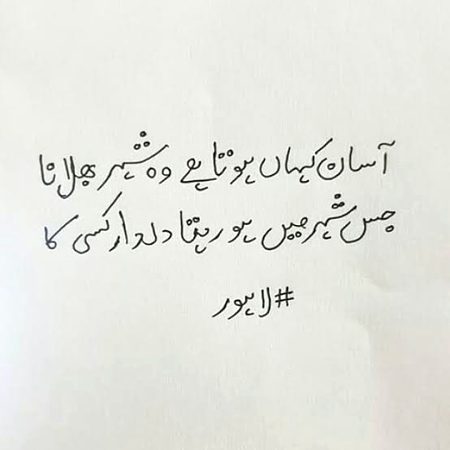 آسان کہاں ہوتا ہے وہ شہر بھلانا
جس شہر میں ہو رہتا دلدار کسی کا
#لاہور